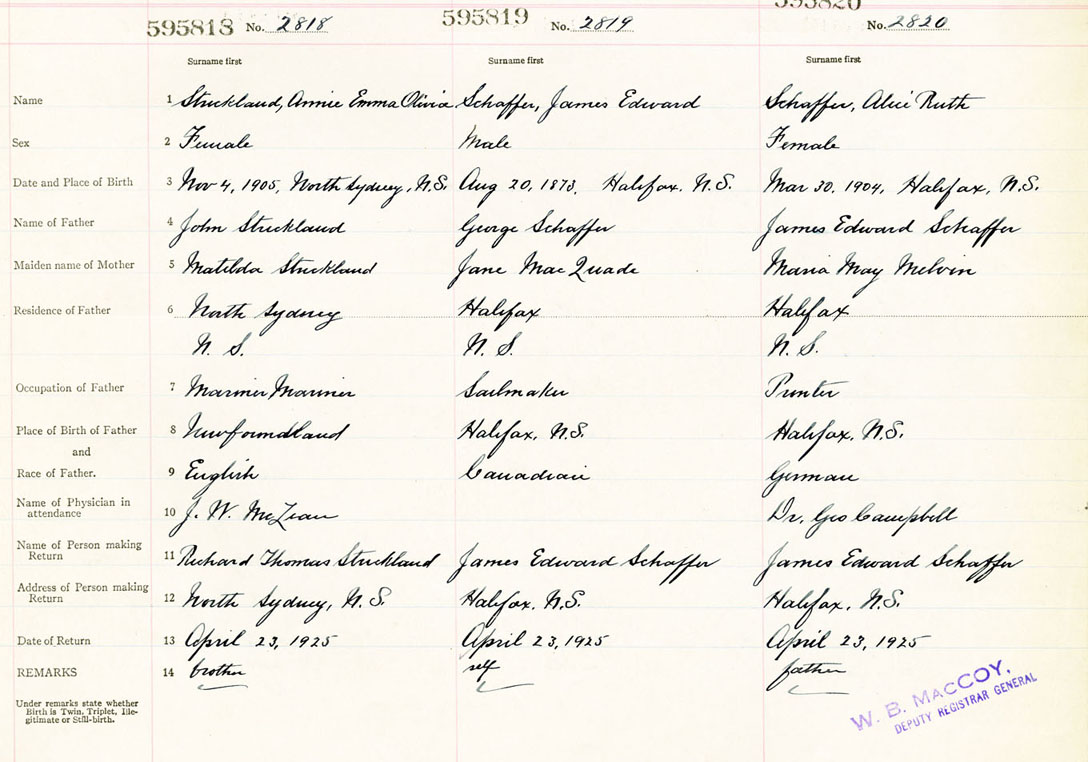 595818 No. 2818
595819 No. 2819
595820 No. 2820
Surname first Surname first Surname first
Name 1 Strickland, Annie Emma Olivia Schaffer, James Edward Schaffer, Alice Ruth
Sex 2 Female Male Female
Date and Place of Birth 3 Nov 4, 1905, North Sydney, N.S. Aug 20, 1873, Halifax, N.S. Mar 30, 1904, Halifax, N.S.
Name of Father 4 John Strickland George Schaffer James Edward Schaffer
Maiden name of Mother 5 Matilda Strickland Jane MacQuade Maria May Melvin
Residence of Father 6 North Sydney Halifax Halifax
N. S. N. S. N. S.
Occupation of Father 7 Mariner Mariner Sailmaker Printer
Place of Birth of Father 8 Newfoundland Halifax, N.S. Halifax, N.S.
and
Race of Father. 9 English Canadian German
Name of Physician in
attendance 10 J. W. McLean Dr. Geo Campbell
Name of Person making
Return 11 Richard Thomas Strickland James Edward Schaffer James Edward Schaffer
Address of Person making
Return 12 North Sydney, N.S. Halifax, N.S. Halifax, N.S.
Date of Return 13 April 23, 1925 April 23, 1925 April 23, 1925
REMARKS 14 brother self father
Under remarks state whether
Birth is Twin, Triplet, Ille-
gitimate or Still-birth.
W. B. MACCOY,
DEPUTY REGISTRAR GENERAL